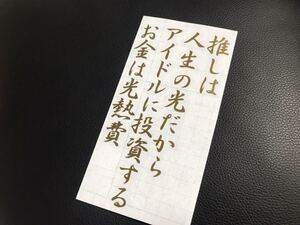 推しは
人生の光だから
アイドルに投資する
お金は光熱費